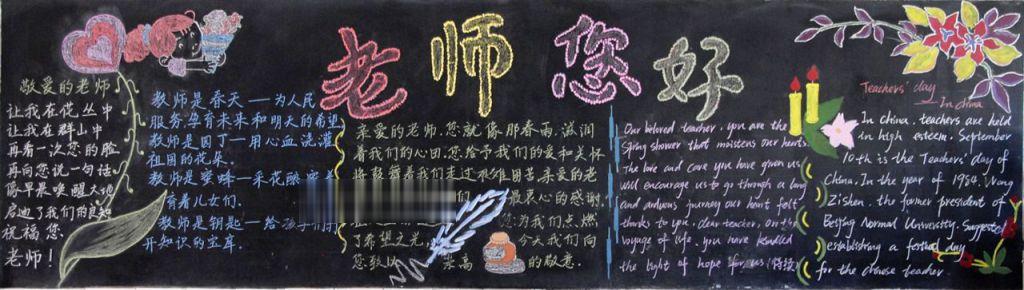 老师您好
敬爱的老师
让我在花丛中
让我在群山中
再看一次您的脸
再向您说一句话
像早晨唤醒大地
启迪了我们的良知
祝福您
老师！
教师是春天一为人民
服务孕育未来和明天的希望
教师是园丁一用心血浇灌
祖国的花朵
教师是蜜蜂一采花酿蜜
育着儿女们
教师是钥匙一给孩子们打
开知识的宝库
亲爱的老师,您就像那春雨,滋润
着我们的心田,您给予我们的爱和关怀
将鼓舞着我们走过艰难困苦,亲爱的老
们 最衷心的感谢,
您为我们点燃
了希望之光 今天我们向
您致以 崇高 的敬意.
Our beloved teacher, you are the
Spring shower that moistens our hearts
The love and care you have given us
will encourage us to go through a long
and arduous journey our heart felt
thanks to you, dear teacher, On the
voyage of life, you have kindled
the light of hope for us
Teachers' day
In China
In China, teachers are held
in high esteem. September
10th is the Teachers' day of
China. In the year of 1954, Wang
Zishen, the former president of
Beijing Normal University, Suggested
establishing a festival day
for the chinese teacher.